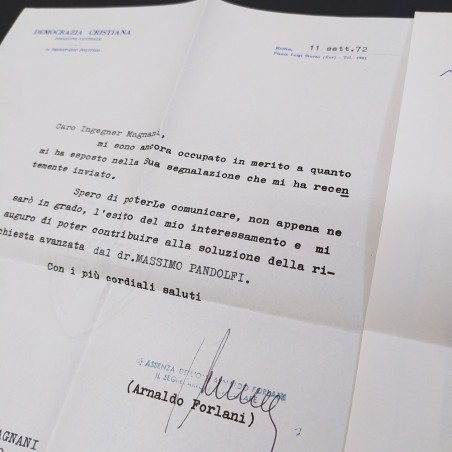 DEMOCRAZIA CRISTIANA
DIREZIONE CENTRALE
IL SEGRETARIO POLITICO
Roma, 11 sett.72
Piazza Luigi Sturzo (Eur) - Tel. 5901
Caro Ingegner Magnani,
mi sono ancora occupato in merito a quanto
mi ha esposto nella Sua segnalazione che mi ha recen
temente inviato.
Spero di poterLe comunicare, non appena ne
sarò in grado, l'esito del mio interessamento e mi
auguro di poter contribuire alla soluzione della ri-
chiesta avanzata dal dr.MASSIMO PANDOLFI.
Con i più cordiali saluti
ASSENZA ARNALDO FORLANI
IL
(Arnaldo Forlani)
AGNANI